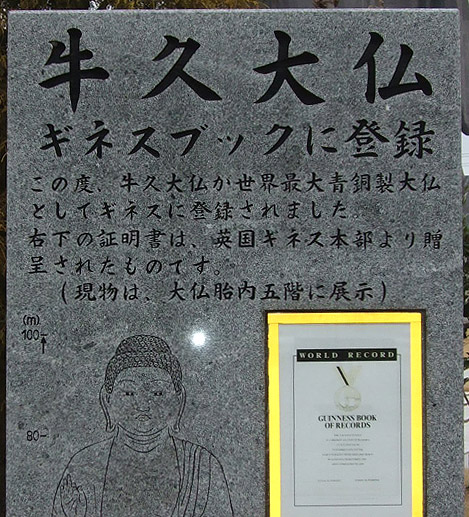 牛久大仏
ギネスブックに登録
この度、牛久大仏が世界最大青銅製大仏
としてギネスに登録されました。
右下の証明書は、英国ギネス本部より贈
呈されたものです。
(現物は、大仏胎内五階に展示)
(m)
100
80
WORLD RECORD
GUINNESS BOOK
OF RECORDS